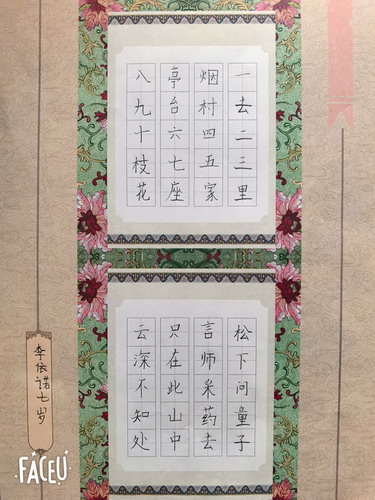 一去二三里
烟村四五家
亭台六七座
八九十枝花
松下问童子
言师采药去
只在此山中
云深不知处
李依诺七岁
FACEU